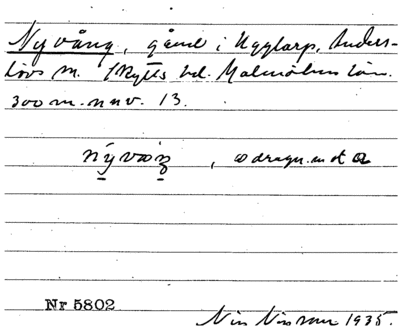 Nyvång, gård i Ugglarp, Anders-
lövs sn. Skytts hd. Malmöhus län.
300 m. nnv. 13.
nývaŋ , a dragn. mot
Nr 5802
Nils Nilsson 1935.